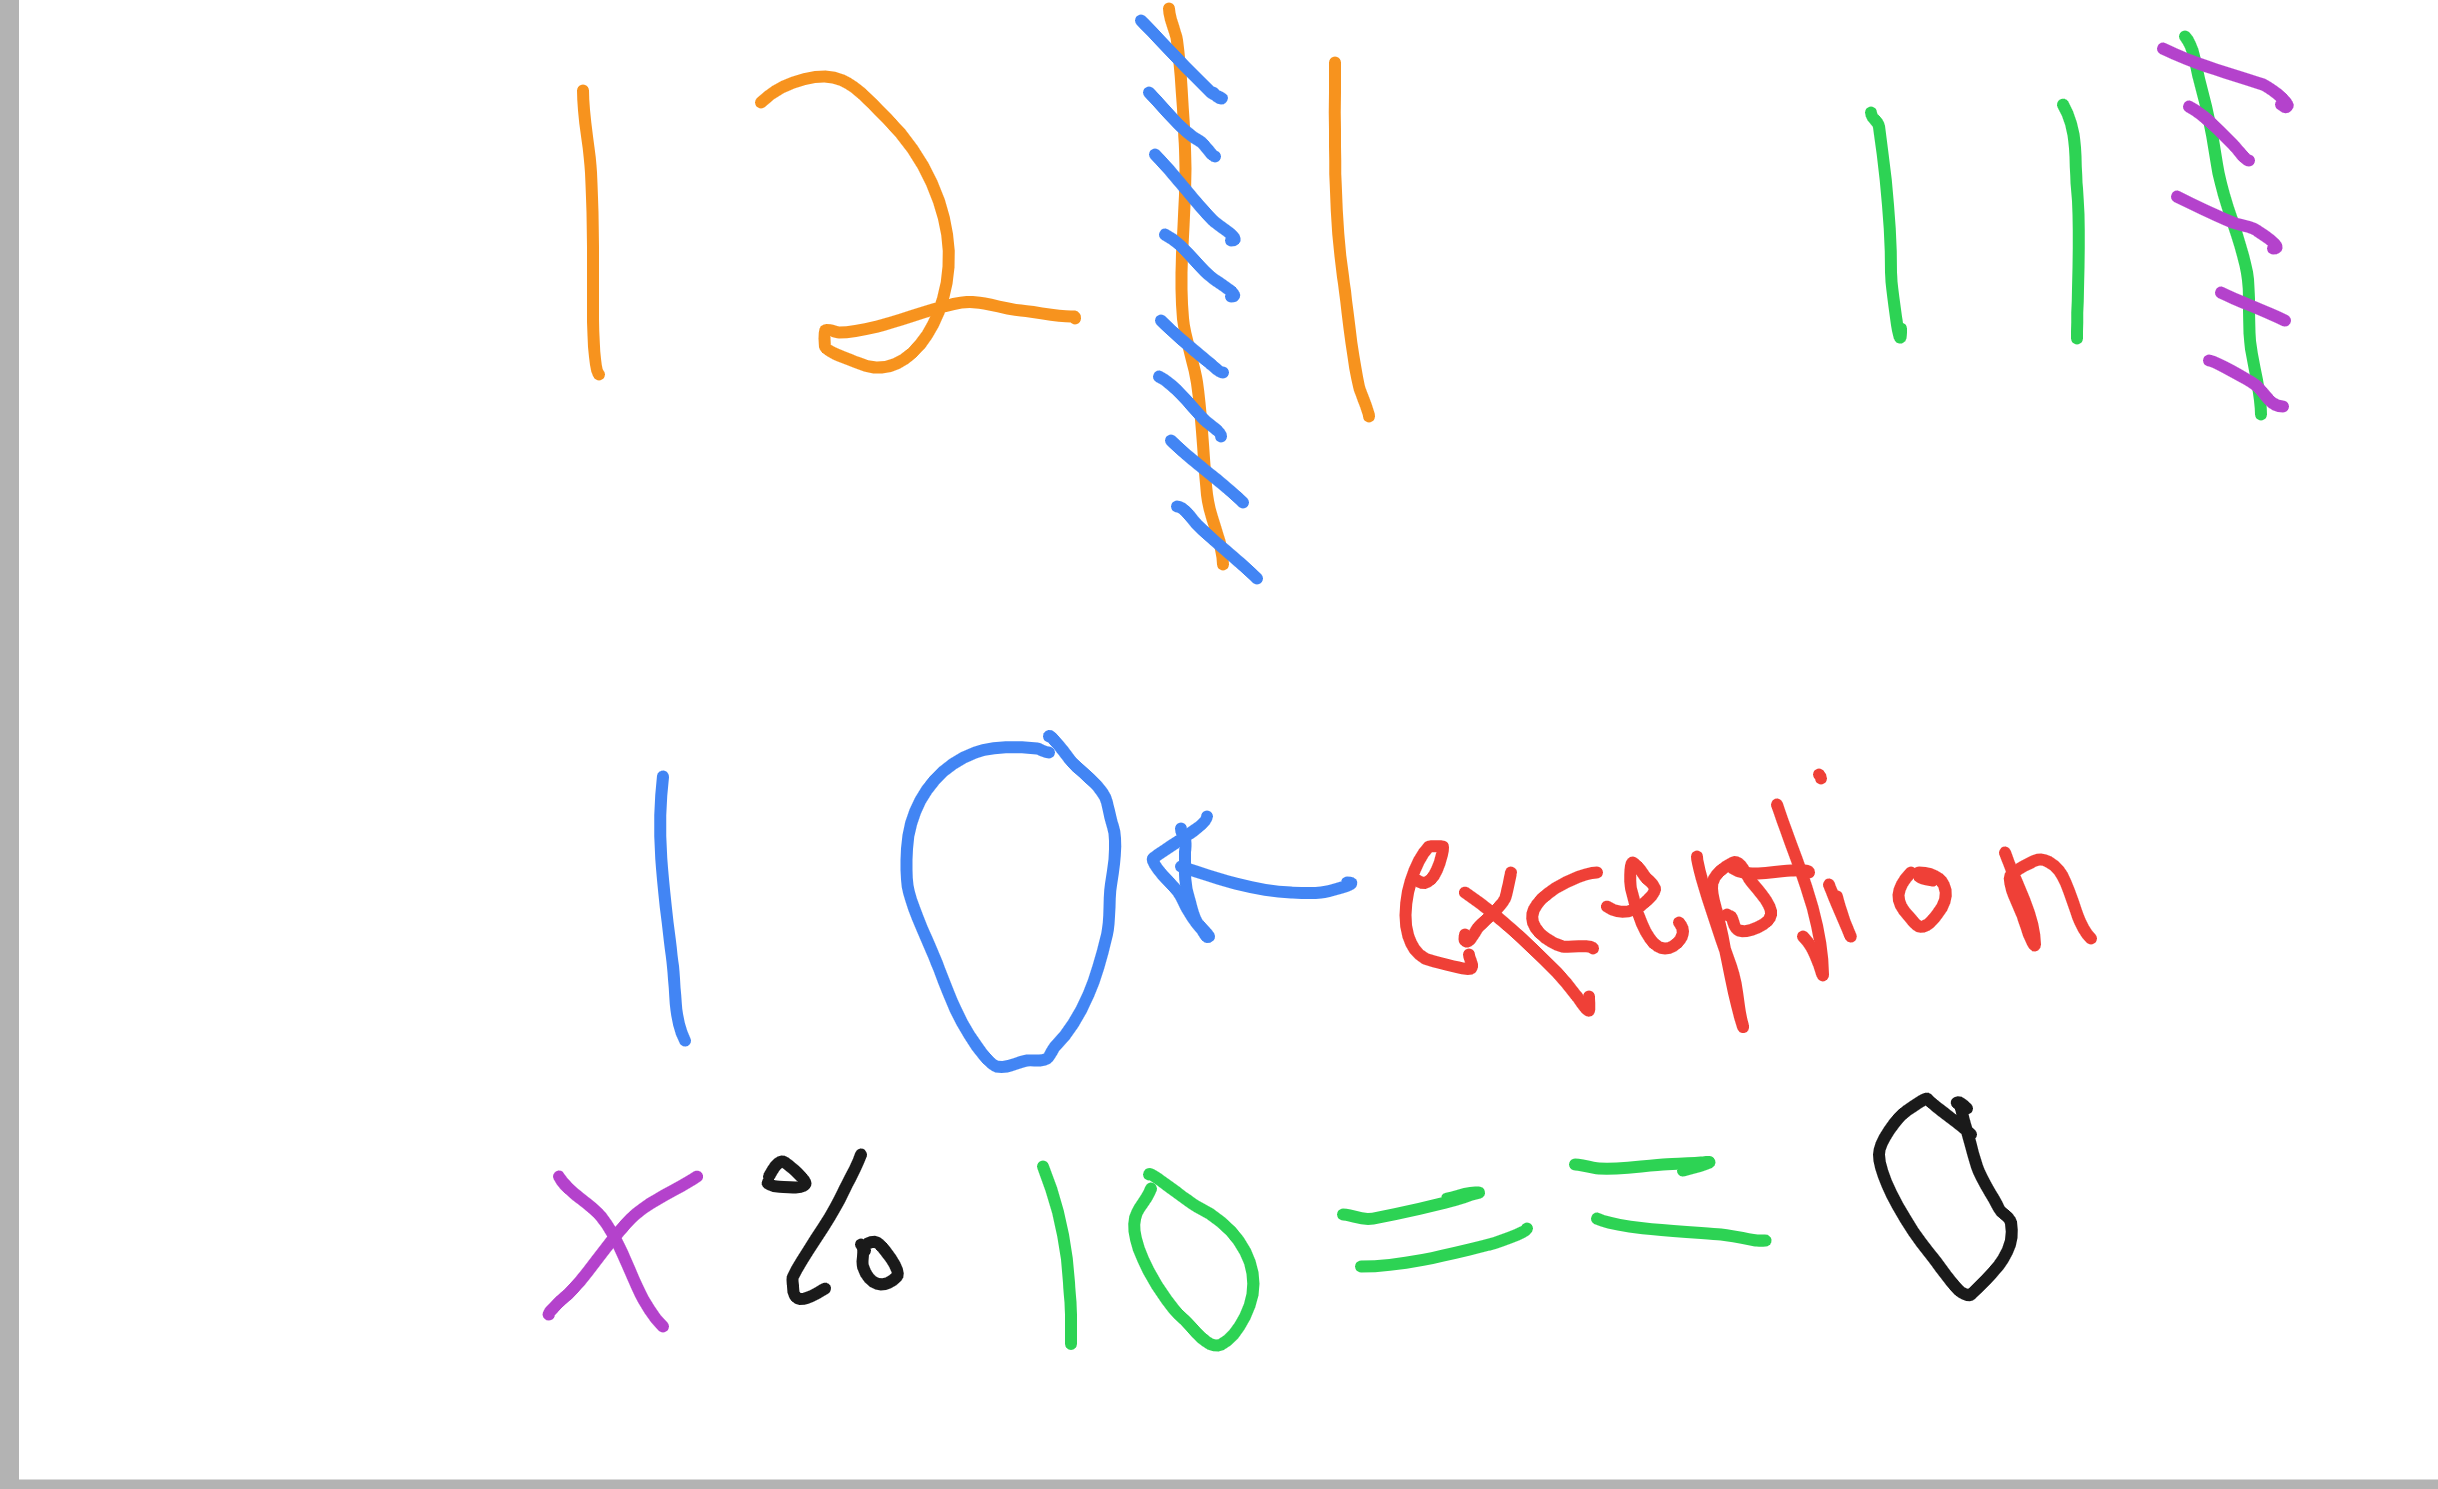 12 | 1 11 |
10 ← exception
x % 10 == 0